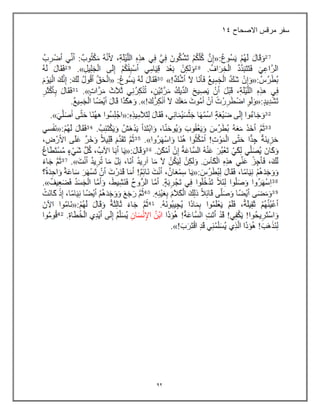 سفر مرقس الاصحاح ١٤
27 وَقَالَ لَهُمْ يَسُوعُ:«إِنَّ كُلَّكُمْ تَشُكُّونَ فِيَّ فِي هذِهِ اللَّيْلَةِ، لأَنَّهُ مَكْتُوبٌ: أَنِّي أَضْرِبُ
الرَّاعِيَ فَتَتَبَدَّدُ الْخِرَافُ. 28 وَلكِنْ بَعْدَ قِيَامِي أَسْبِقُكُمْ إِلَى الْجَلِيلِ». 29 فَقَالَ لَهُ
بُطْرُسُ:«وَإِنْ شَكَّ الْجَمِيعُ فَأَنَا لاَ أَشُكُّ!» 30 فَقَالَ لَهُ يَسُوعُ: «الْحَقَّ أَقُولُ لَكَ: إِنَّكَ الْيَوْمَ
فِي هذِهِ اللَّيْلَةِ، قَبْلَ أَنْ يَصِيحَ الدِّيكُ مَرَّتَيْنِ، تُنْكِرُنِي ثَلاَثَ مَرَّاتٍ». 31 فَقَالَ بِأَكْثَرِ
تَشْدِيدٍ:«وَلَوِ اضْطُرِرْتُ أَنْ أَمُوتَ مَعَكَ لاَ أُنْكِرُكَ!». وَهكَذَا قَالَ أَيْضًا الْجَمِيعُ.
32 وَجَاءُوا إِلَى ضَيْعَةٍ اسْمُهَا جَثْسَيْمَانِي، فَقَالَ لِتَلاَمِيذِهِ:«اجْلِسُوا ههُنَا حَتَّى أُصَلِّيَ».
33 ثُمَّ أَخَذَ مَعَهُ بُطْرُسَ وَيَعْقُوبَ وَيُوحَنَّا، وَابْتَدَأَ يَدْهَشُ وَيَكْتَئِبُ. 34 فَقَالَ لَهُمْ:«نَفْسِي
حَزِينَةٌ جِدًّا حَتَّى الْمَوْتِ! اُمْكُثُوا هُنَا وَاسْهَرُوا». 35 ثُمَّ تَقَدَّمَ قَلِيلاً وَخَرَّ عَلَى الأَرْضِ،
وَكَانَ يُصَلِّي لِكَيْ تَعْبُرَ عَنْهُ السَّاعَةُ إِنْ أَمْكَنَ. 36 وَقَالَ:«يَا أَبَا الآبُ، كُلُّ شَيْءٍ مُسْتَطَاعٌ
لَكَ، فَأَجِزْ عَنِّي هذِهِ الْكَأْسَ. وَلكِنْ لِيَكُنْ لاَ مَا أُرِيدُ أَنَا، بَلْ مَا تُرِيدُ أَنْتَ». 37 ثُمَّ جَاءَ
وَوَجَدَهُمْ نِيَامًا، فَقَالَ لِبُطْرُسَ:«يَا سِمْعَانُ، أَنْتَ نَائِمٌ! أَمَا قَدَرْتَ أَنْ تَسْهَرَ سَاعَةً وَاحِدَةً؟
38 اِسْهَرُوا وَصَلُّوا لِئَلاَّ تَدْخُلُوا فِي تَجْرِبَةٍ. أَمَّا الرُّوحُ فَنَشِيطٌ، وَأَمَّا الْجَسَدُ فَضَعِيفٌ».
39 وَمَضَى أَيْضًا وَصَلَّى قَائِلاً ذلِكَ الْكَلاَمَ بِعَيْنِهِ. 40 ثُمَّ رَجَعَ وَوَجَدَهُمْ أَيْضًا نِيَامًا، إِذْ كَانَتْ
أَعْيُنُهُمْ ثَقِيلَةً، فَلَمْ يَعْلَمُوا بِمَاذَا يُجِيبُونَهُ. 41 ثُمَّ جَاءَ ثَالِثَةً وَقَالَ لَهُمْ:«نَامُوا الآنَ
وَاسْتَرِيحُوا! يَكْفِي! قَدْ أَتَتِ السَّاعَةُ! هُوَذَا ابْنُ الإِنْسَانِ يُسَلَّمُ إِلَى أَيْدِي الْخُطَاةِ. 42 قُومُوا
لِنَذْهَبَ! هُوَذَا الَّذِي يُسَلِّمُنِي قَدِ اقْتَرَبَ!».
٩٢